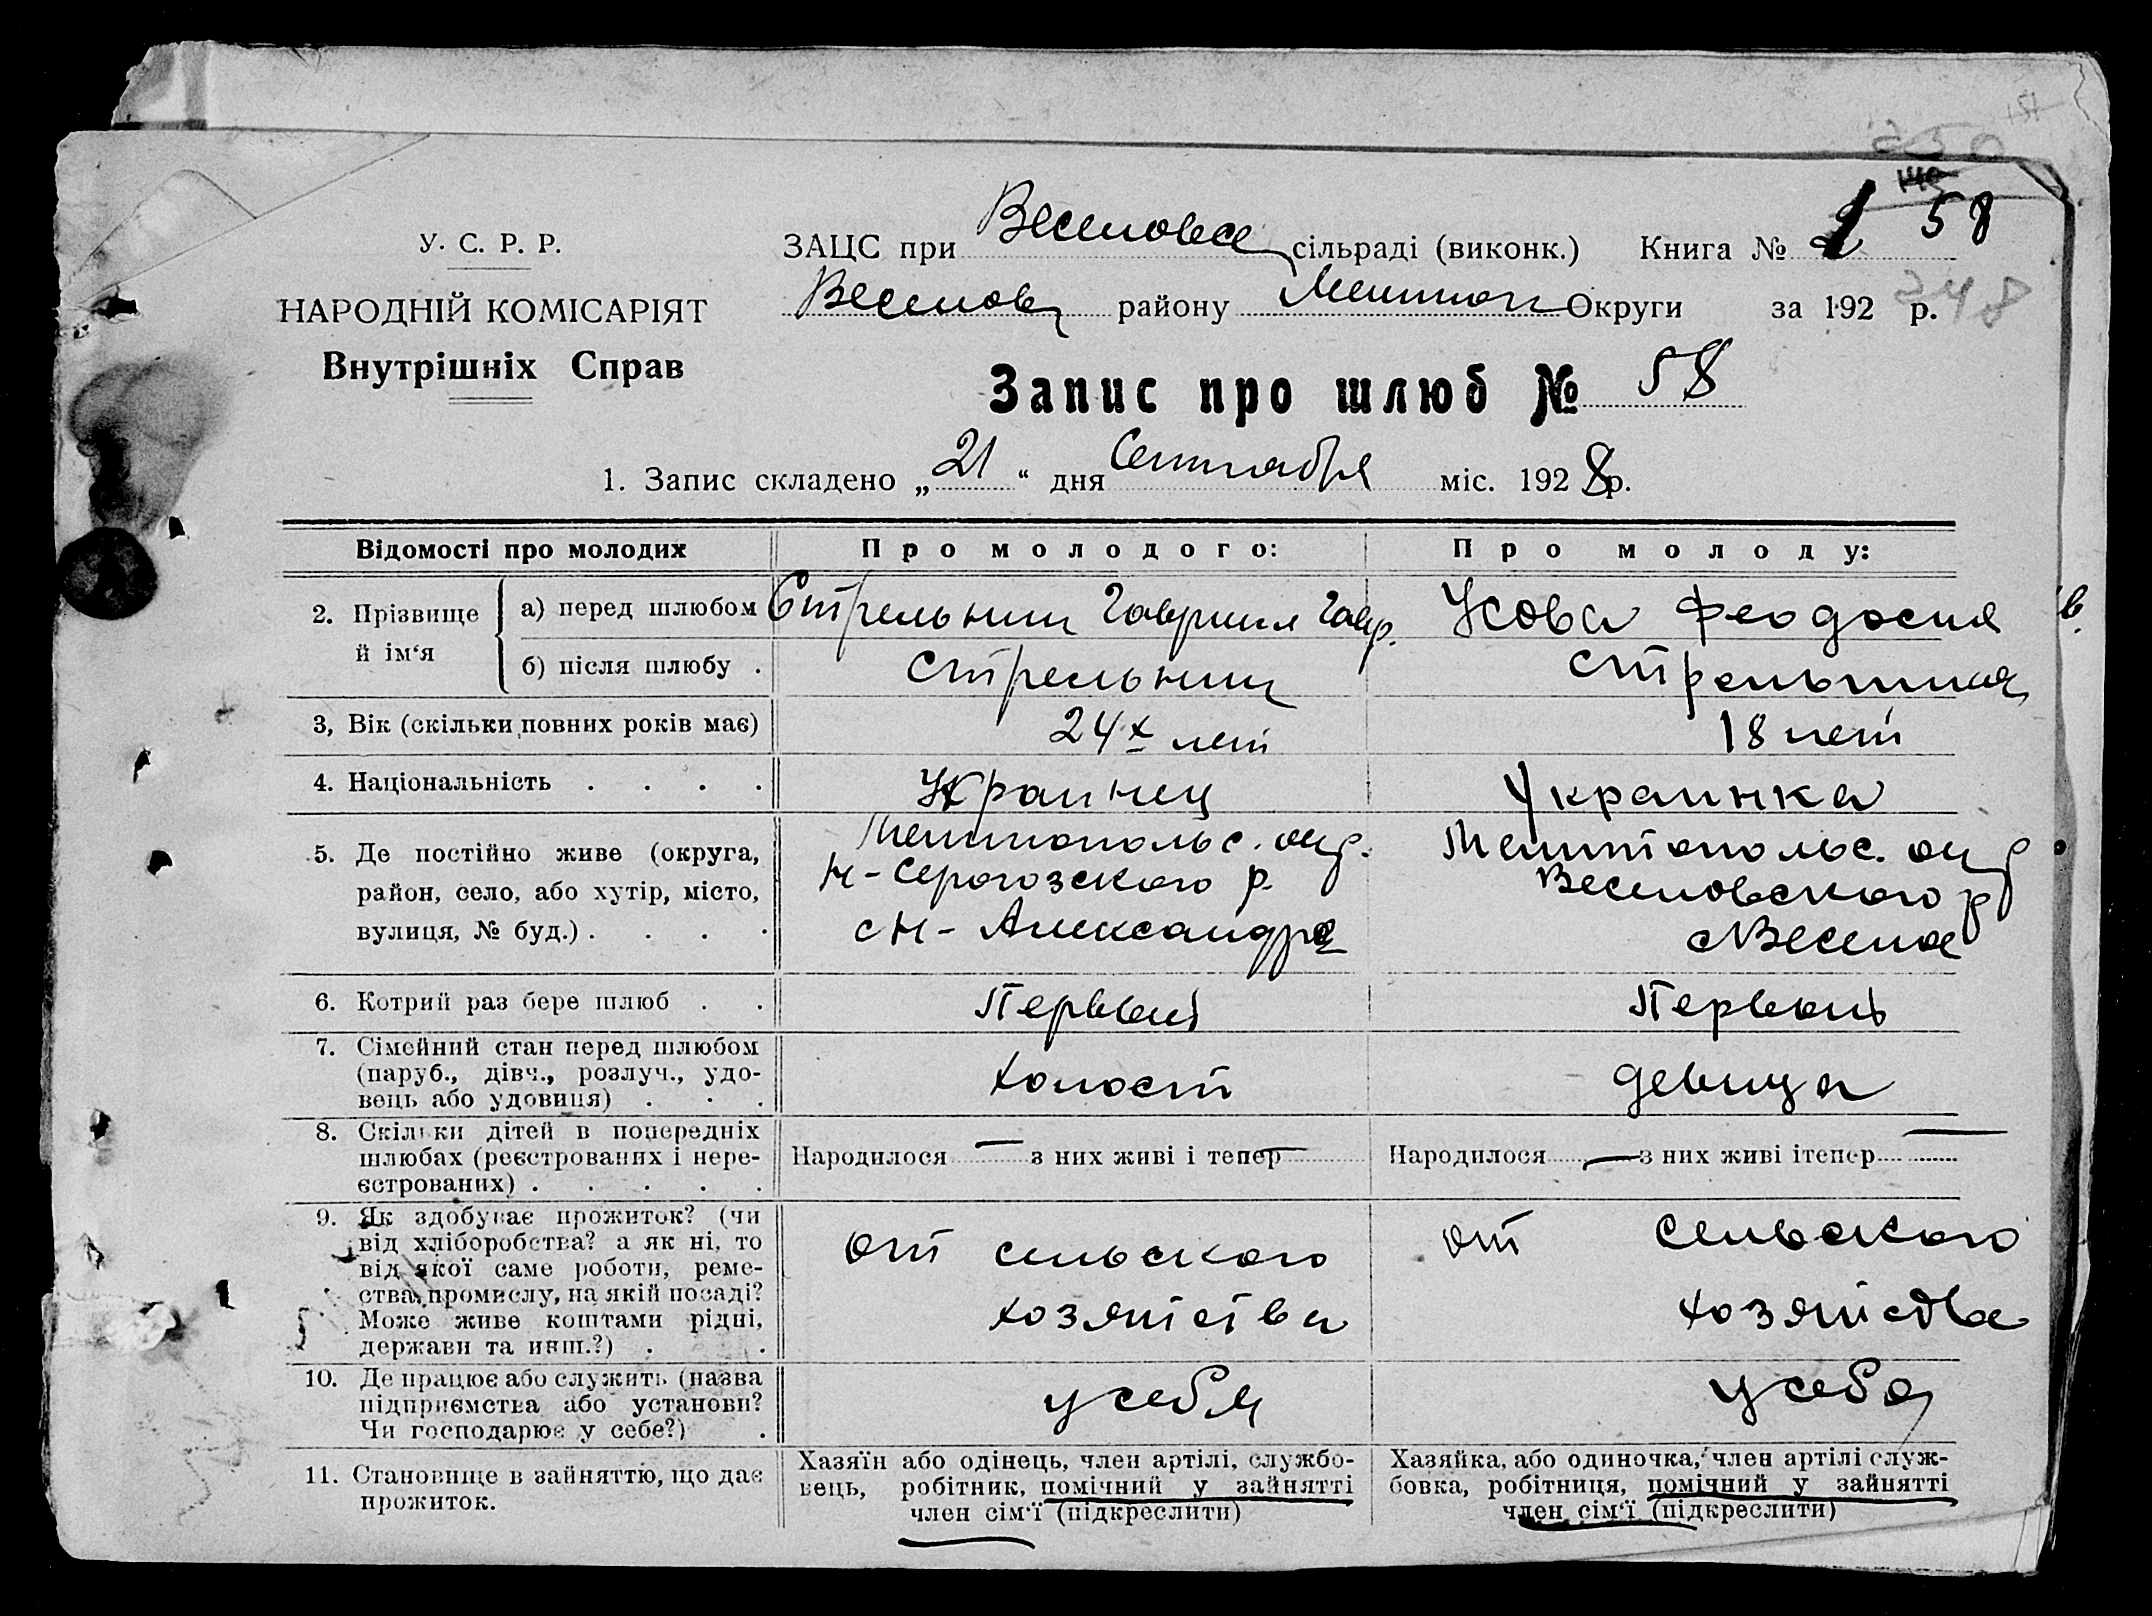 У. С. Р. Р.
НАРОДНІЙ КОМІСАРІЯТ
Внутрішніх Справ
ЗАЦС при Веселовск сільраді (виконк.) Книга № 58
Веселов району Округи за 192 р.
248
Запис про шлюб № 58
1. Запис складено „ 21 “ дня Сентября міс. 1928 р.
Відомості про молодих
Про молодого:
Про молоду:
2. Прізвище й ім‘я
а) перед шлюбом
Стрельник Гавриил Гавр.
Усова Феодосия
в.
б) після шлюбу .
Стрельник
Стрельник
3, Вік (скільки повних років має)
24х лет
18 лет
4. Національність . . . .
Украинец
Украинка
5. Де постійно живе (округа,
район, село, або хутір, місто,
вулиця, № буд.) . . . .
Мелитопольс. окр.
Н-Серогозского р.
с Н-Александр
Мелитопольс. окр
Веселовского р
с Веселое
6. Котрий раз бере шлюб . .
Первый
Первый
7. Сімейний стан перед шлюбом
(паруб., дівч., розлуч., удо-
вець або удовиця) . . .
холост
девица
8. Скільки дітей в попередніх
шлюбах (реєстрованих і нере-
єстрованих) . . . . .
Народилося — з них живі і тепер —
Народилося — з них живі ітепер —
9. Як здобуває прожиток? (чи
від хліборобства? а як ні, то
від якої саме роботи, реме-
ства, промислу, на якій посаді?
Може живе коштами рідні,
держави та инш.?) . .
от сельского
хозяйства
от сельского
хозяйства
10. Де працює або служить (назва
підприємства або установи?
Чи господарює у себе?) .
у себя
у себя
11. Становище в зайняттю, що дає
прожиток.
Хазяїн або одінець, член артілі, службо-
вець, робітник, помічний у зайнятті
член сім‘ї (підкреслити)
Хазяйка, або одиночка, член артілі служ-
бовка, робітниця, помічний у зайнятті
член сім‘ї (підкреслити)